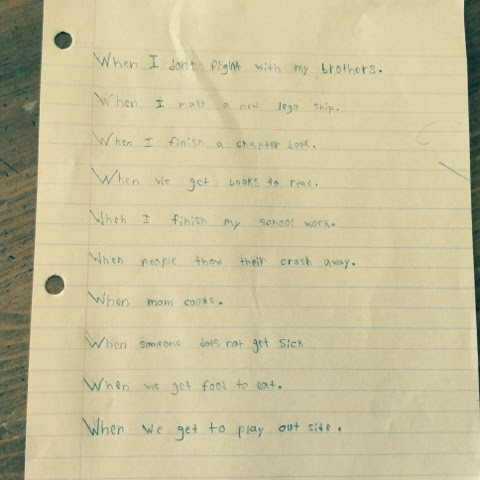 When I dont fight with my brothers.
When I make a new lego ship.
When I finish a chapter book.
When we get books to read.
When I finish my school work.
When people thow their crash away.
When mom cooks.
When someone does not get sick
When we get food to eat.
When we get to play out side.